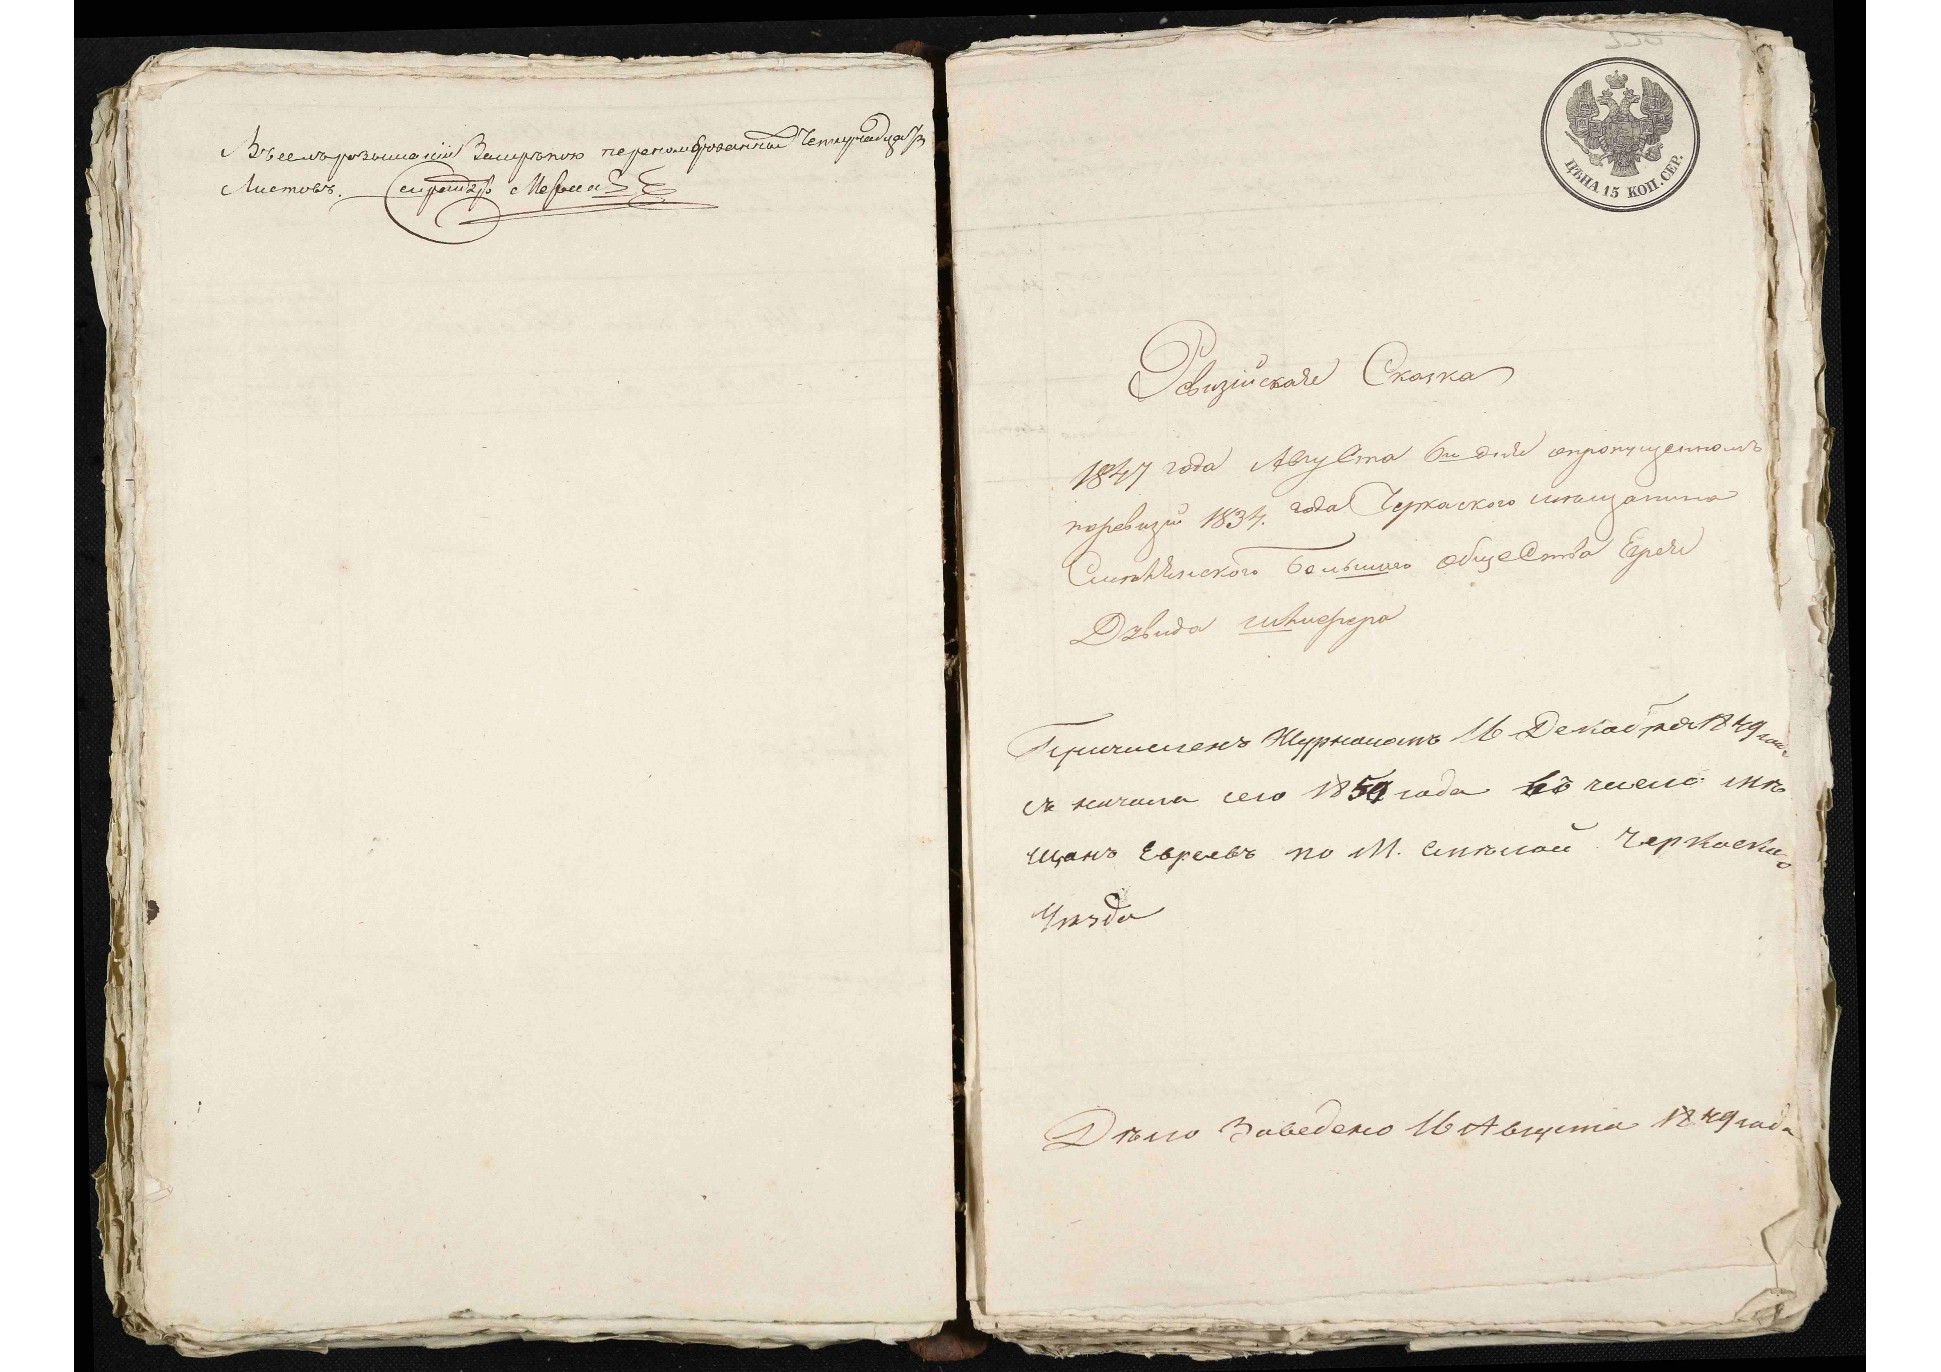 Въ сей ревизской за скрѣпою перенумерованныхъ четырнадцать
Листовъ.
ЦѢНА 15 КОП. СЕР.
Ревизійская Сказка
1847 года Августа 6го дня опропущенномъ
поревизіи 1834. года Черкаского мѣщанина
Смѣлянского Большого общества Еврея
Двида
Причисленъ Журналомъ 16 Декабря 1849 года
съ начала сего 1850 года въ число мѣ
щанъ Евреевъ по М. Смѣлой Черкаскаго
Уѣзда
Дѣло Заведено 16 Августа 1849 года